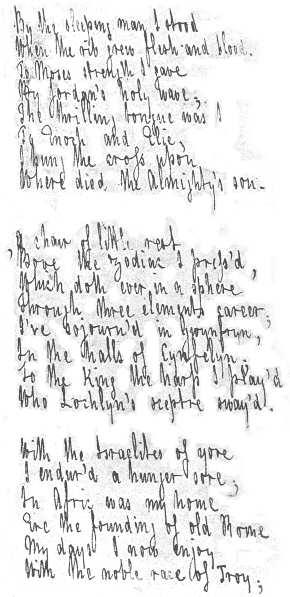 By the sleeping man I stood
When the rib grew flesh and blood.
To Moses strength I gave
By Jordan's holy wave;
The thrilling tongue was I
To Enoch and Elie,
I hung the cross upon
Where died the Almighty's son.
A chair of little rest
'Bove the Zodiac I press'd,
Which doth ever in a sphere
Through three elements career;
I've sojourn'd in Gwynfryn,
In the halls of Cynfelyn.
To the King the harp I play'd
Who Lochlyn's sceptre sway'd.
With the Israelites of yore
I endur'd a hunger sore;
In Afric was my home
Ere the founding of old Rome
My days I now enjoy
With the noble race of Troy;